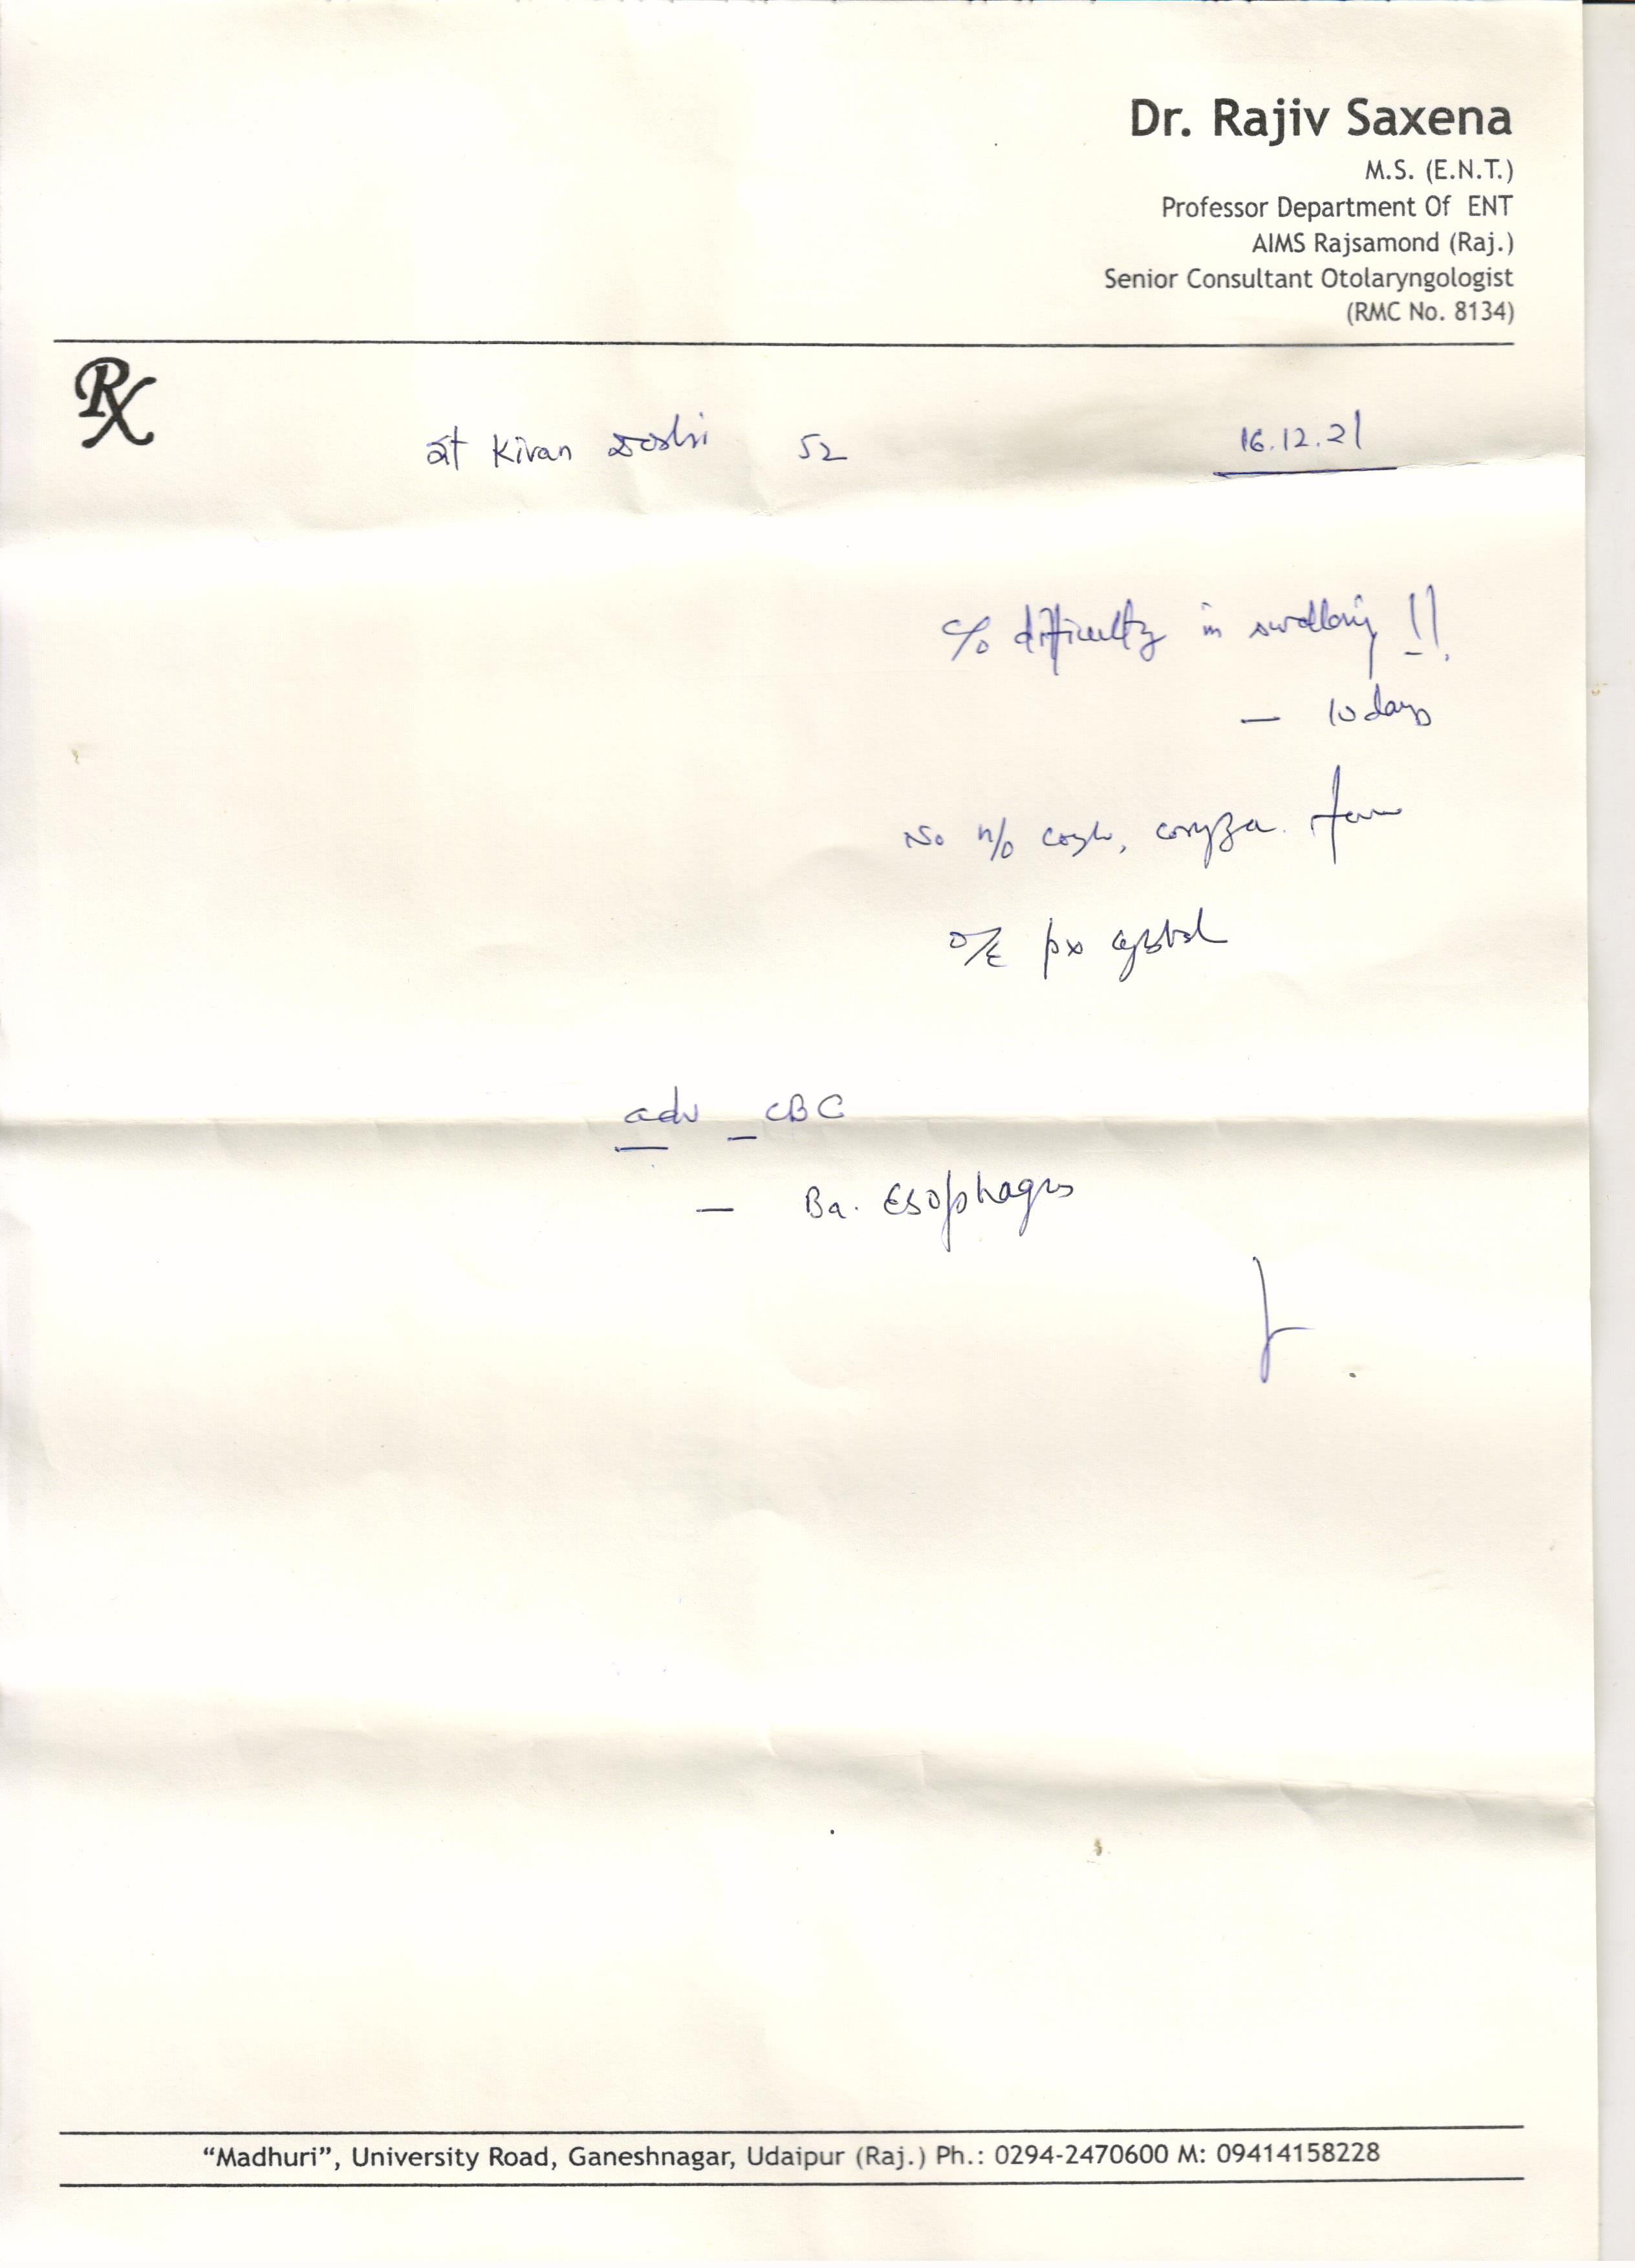 Dr. Rajiv Saxena
M.S. (E.N.T.)
Professor Department Of ENT
AIMS Rajsamond (Raj.)
Senior Consultant Otolaryngologist
(RMC No. 8134)
Rx
Kiran 52 16.12.21
c/o difficulty in !!
— 10 days
No h/o coryza.
O/E
adv - CBC
— Ba. Esophagus
“Madhuri”, University Road, Ganeshnagar, Udaipur (Raj.) Ph.: 0294-2470600 M: 09414158228